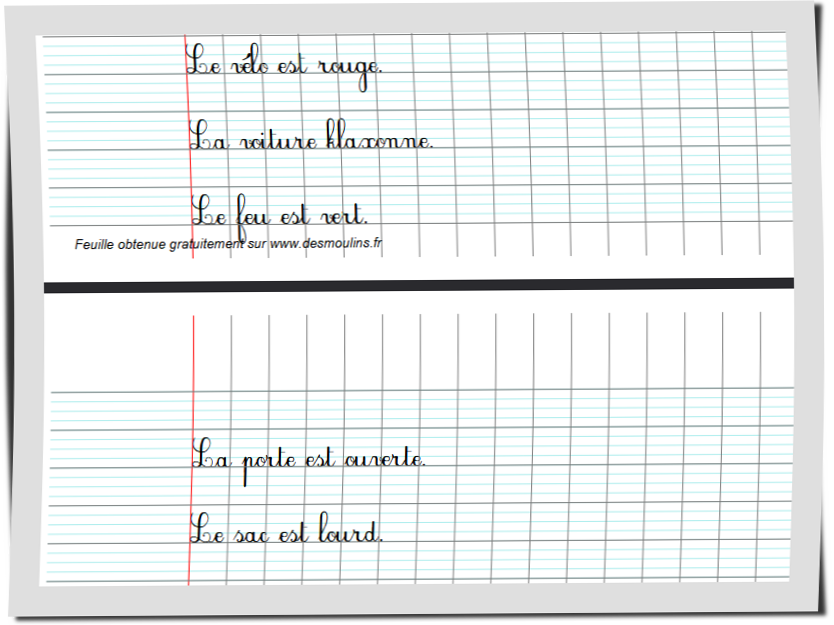 Le vélo est rouge.
La voiture klaxonne.
Le feu est vert.
Feuille obtenue gratuitement sur www.desmoulins.fr
La porte est ouverte.
Le sac est lourd.